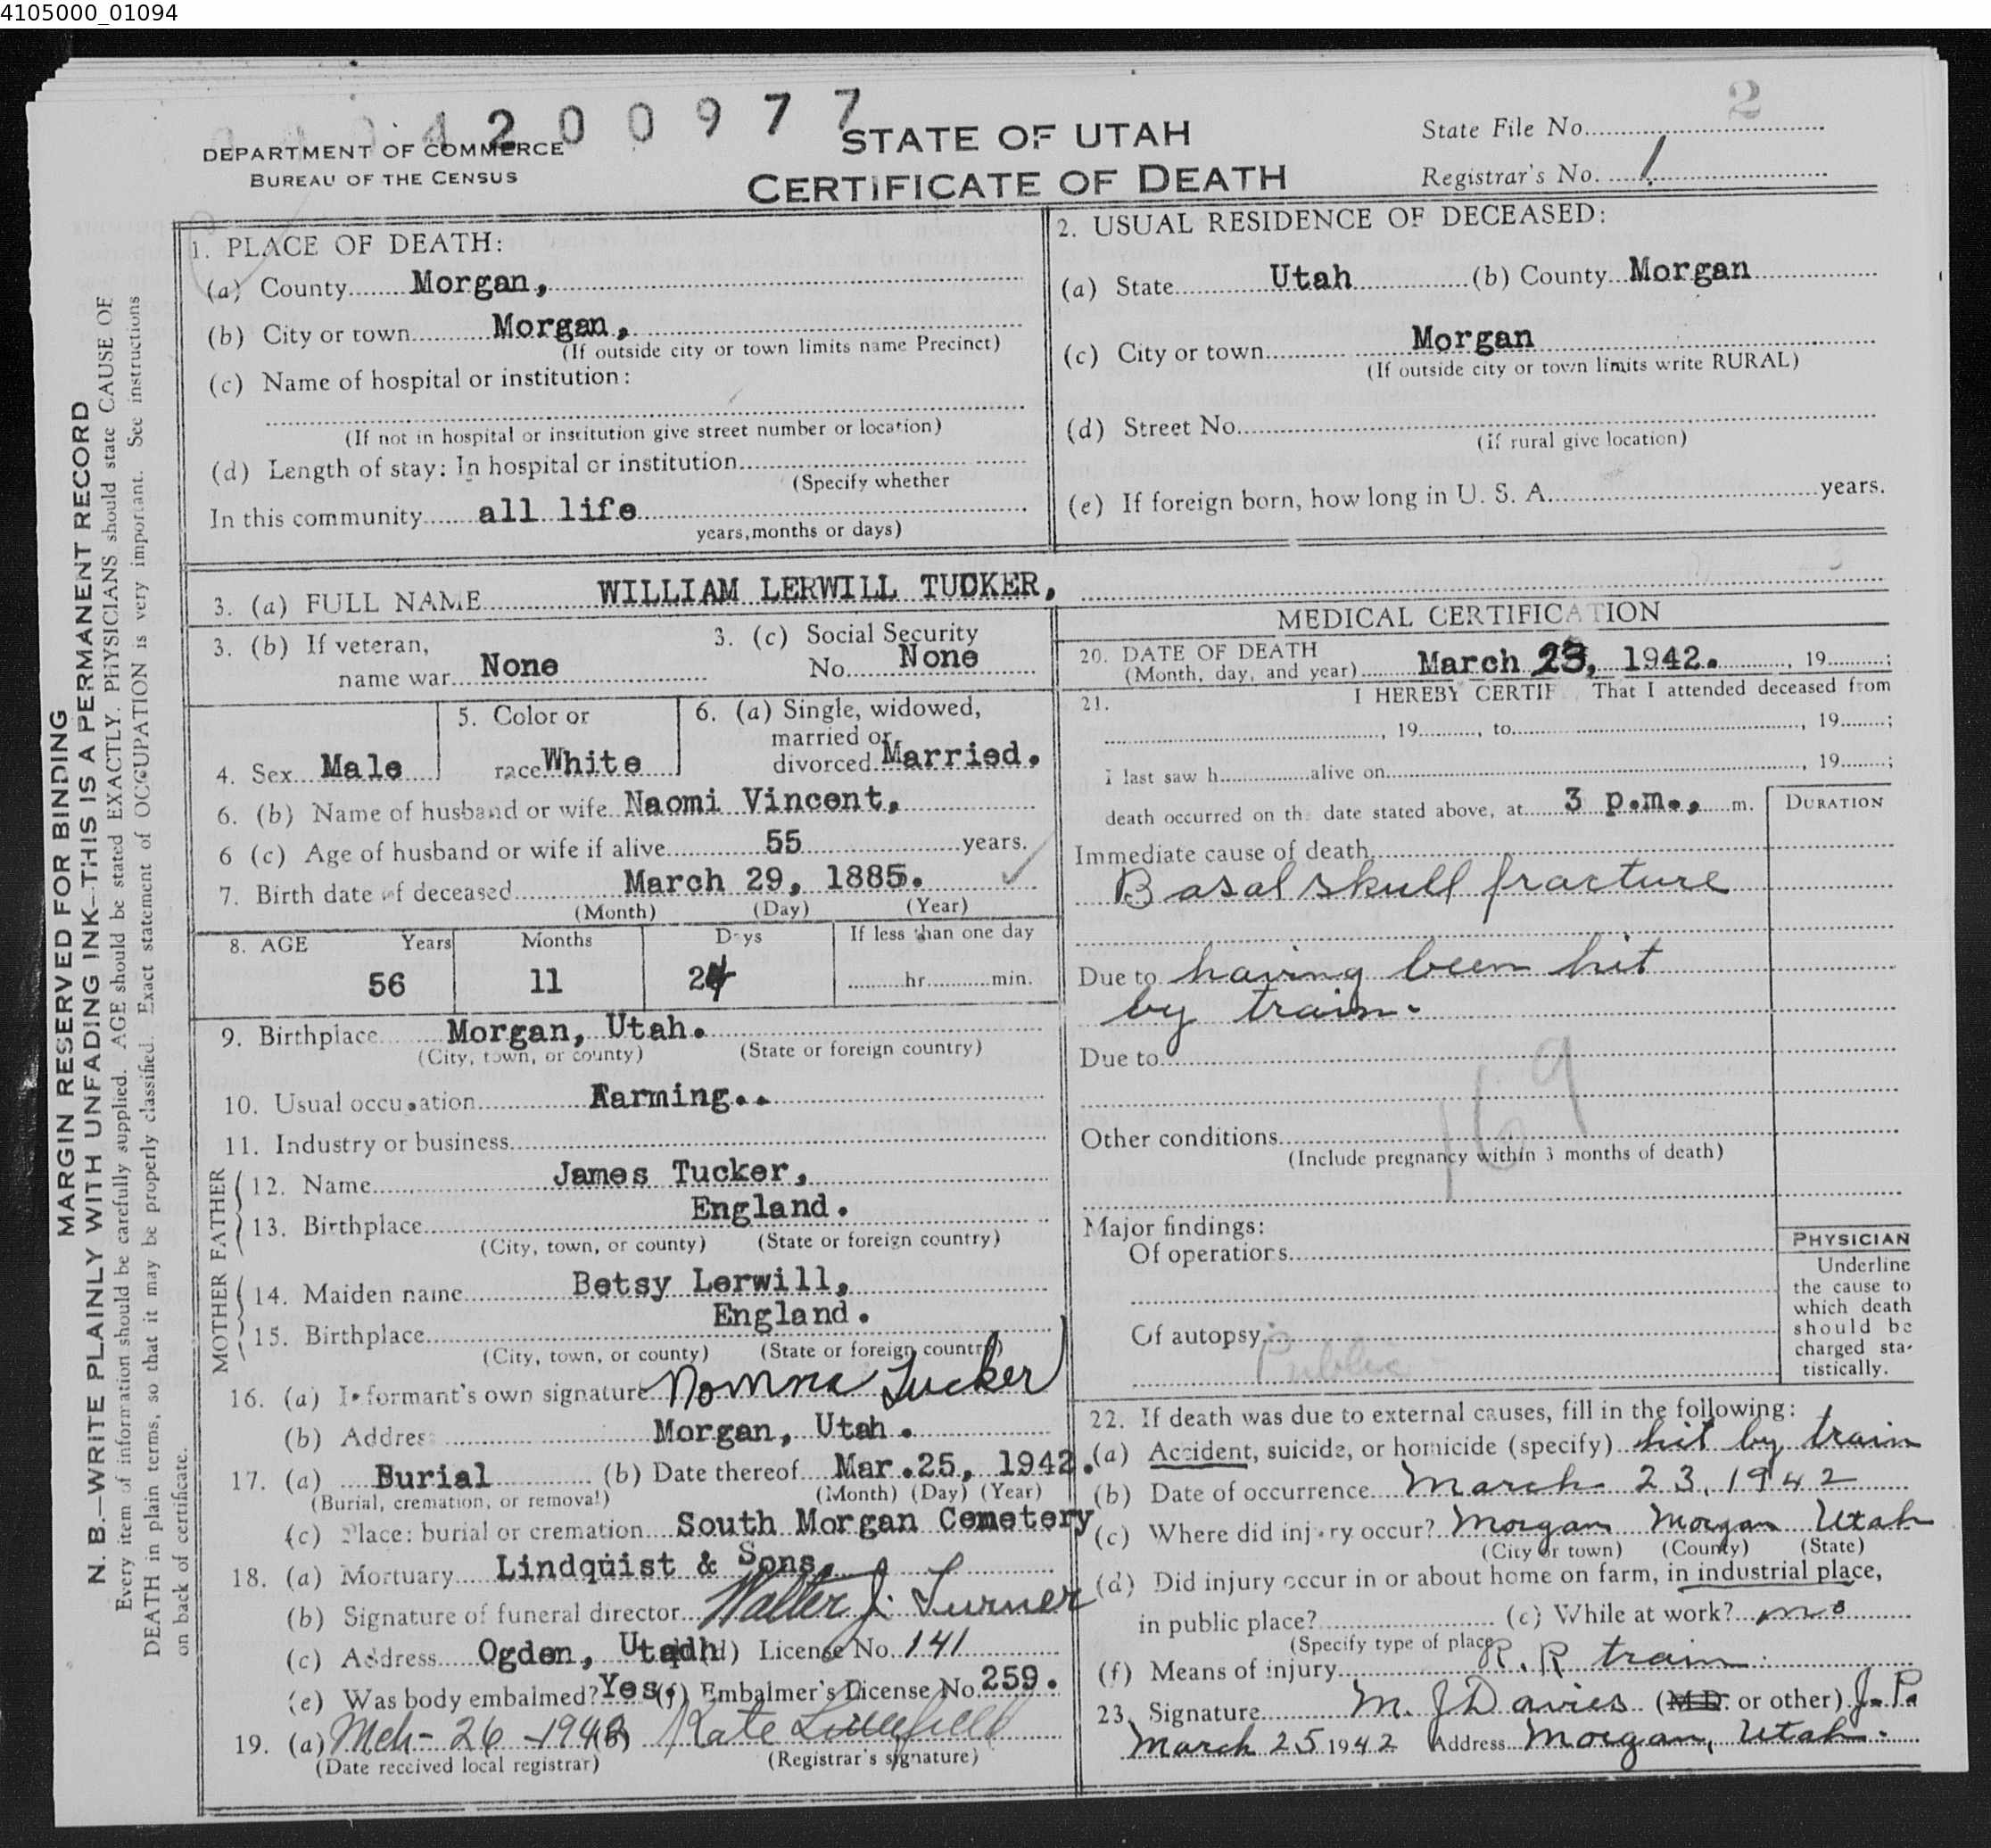 4105000_01094
4200977
2
DEPARTMENT OF COMMERCE
BUREAU OF THE CENSUS
STATE OF UTAH
CERTIFICATE OF DEATH
State File No.
Registrar's No. 1
MARGIN RESERVED FOR BINDING
N. B.—WRITE PLAINLY WITH UNFADING INK—THIS IS A PERMANENT RECORD
Every item of information should be carefully supplied. AGE should be stated EXACTLY. PHYSICIANS should state CAUSE OF
DEATH in plain terms, so that it may be properly classified. Exact statement of OCCUPATION is very important. See instructions
on back of certificate.
1. PLACE OF DEATH:
(a) County Morgan,
(b) City or town Morgan,
(If outside city or town limits name Precinct)
(c) Name of hospital or institution:
(If not in hospital or institution give street number or location)
(d) Length of stay: In hospital or institution
(Specify whether
In this community all life
years, months or days)
2. USUAL RESIDENCE OF DECEASED:
(a) State Utah (b) County Morgan
(c) City or town Morgan
(If outside city or town limits write RURAL)
(d) Street No.
(if rural give location)
(e) If foreign born, how long in U. S. A. years.
3. (a) FULL NAME WILLIAM LERWILL TUCKER,
3. (b) If veteran,
name war None
3. (c) Social Security
No. None
4. Sex Male
5. Color or
race White
6. (a) Single, widowed,
married or
divorced Married.
6. (b) Name of husband or wife Naomi Vincent,
6 (c) Age of husband or wife if alive 55 years.
7. Birth date of deceased March 29, 1885.
(Month) (Day) (Year)
8. AGE Years Months Days If less than one day
56 11 24 hr. min.
9. Birthplace Morgan, Utah.
(City, town, or county) (State or foreign country)
10. Usual occupation Farming..
11. Industry or business
FATHER
12. Name James Tucker,
13. Birthplace England.
(City, town, or county) (State or foreign country)
MOTHER
14. Maiden name Betsy Lerwill,
15. Birthplace England.
(City, town, or county) (State or foreign country)
16. (a) Informant's own signature Tucker
(b) Address Morgan, Utah.
17. (a) Burial (b) Date thereof Mar.25, 1942.
(Burial, cremation, or removal) (Month) (Day) (Year)
(c) Place: burial or cremation South Morgan Cemetery
18. (a) Mortuary Lindquist & Sons,
(b) Signature of funeral director Walter J. Turner
(c) Address Ogden, Utah (d) License No. 141
(e) Was body embalmed? Yes (f) Embalmer's License No. 259.
19. (a) Mch- 26 -1942 (b) Kate Littlefield
(Date received local registrar) (Registrar's signature)
MEDICAL CERTIFICATION
20. DATE OF DEATH
(Month, day, and year) March 23, 1942. , 19 ;
21. I HEREBY CERTIFY, That I attended deceased from
, 19 , to , 19 ;
I last saw h alive on , 19 ;
death occurred on the date stated above, at 3 p.m., m.
DURATION
Immediate cause of death
Basal skull fracture
Due to having been hit
by train.
Due to
169
Other conditions
(Include pregnancy within 3 months of death)
Major findings:
Of operations
Of autopsy
Public
PHYSICIAN
Underline
the cause to
which death
should be
charged sta-
tistically.
22. If death was due to external causes, fill in the following:
(a) Accident, suicide, or homicide (specify) hit by train
(b) Date of occurrence March 23, 1942
(c) Where did injury occur? Morgan Morgan Utah
(City or town) (County) (State)
(d) Did injury occur in or about home on farm, in industrial place,
in public place? (e) While at work? no
(Specify type of place)
(f) Means of injury R. R train
23. Signature M. J Davies (M.D. or other) J.P.
March 25 1942 Address Morgan, Utah.